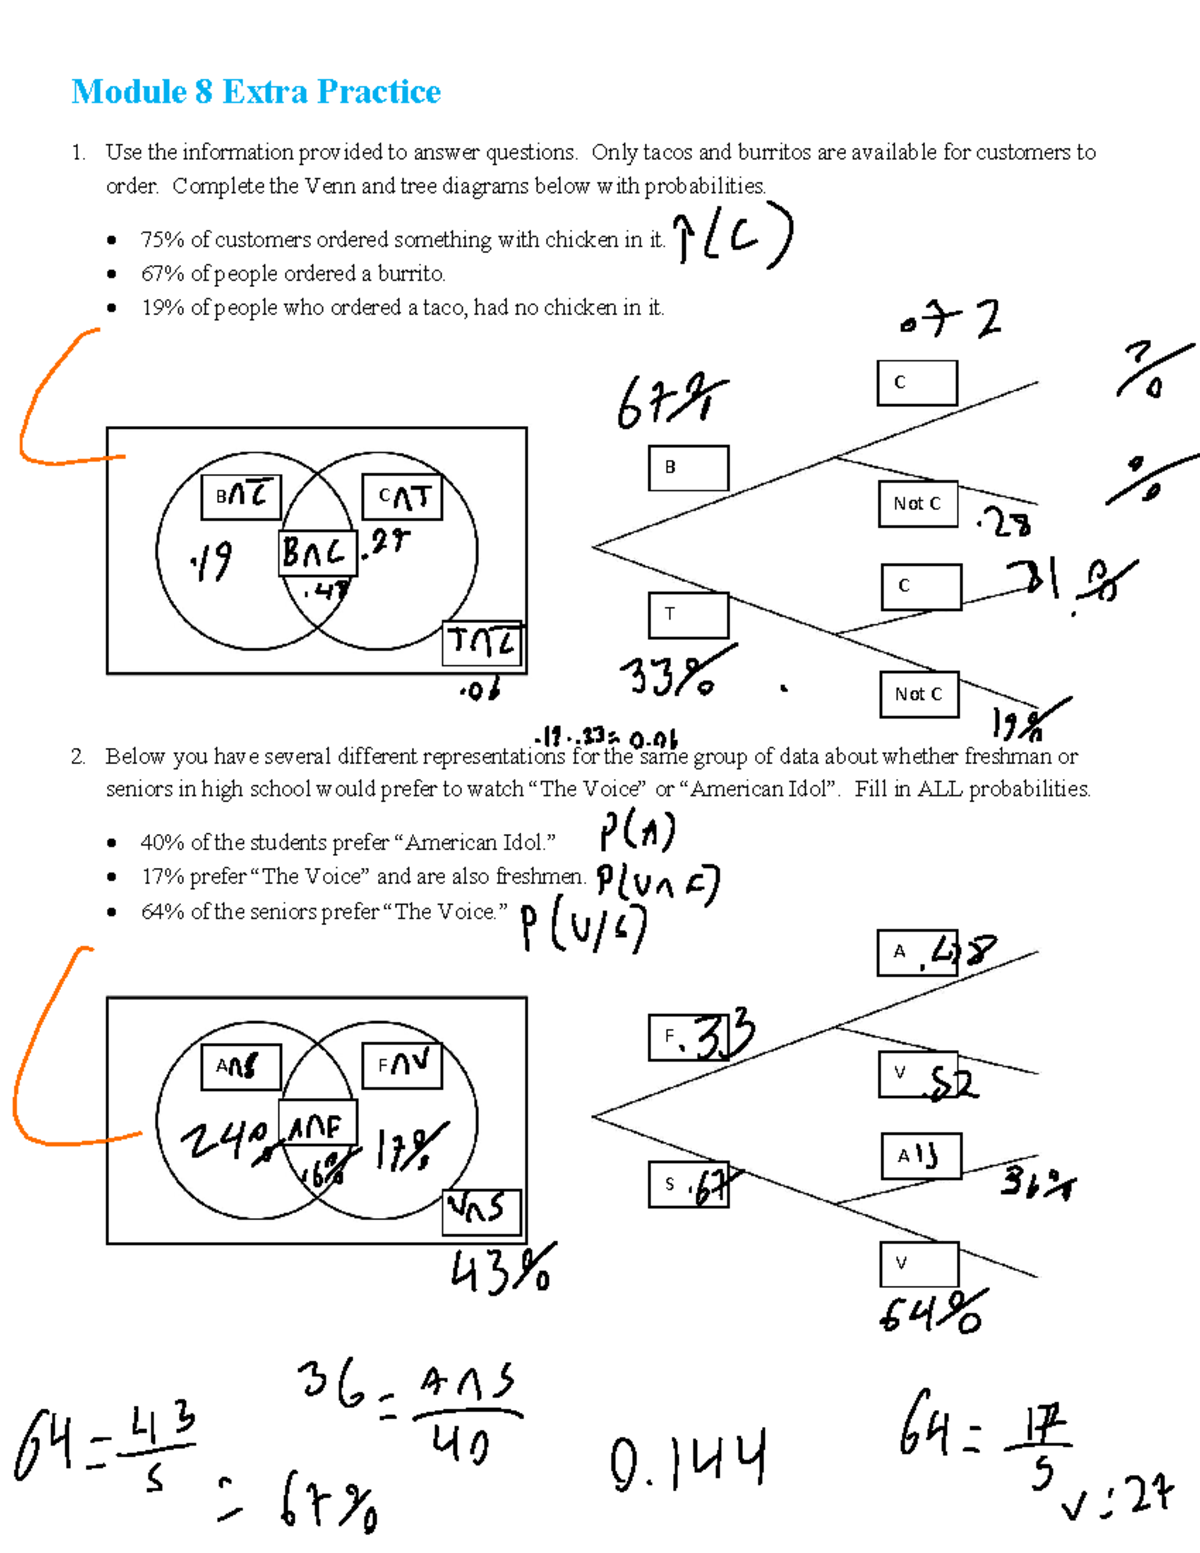 Module 8 Extra Practice
1. Use the information provided to answer questions. Only tacos and burritos are available for customers to
order. Complete the Venn and tree diagrams below with probabilities.
• 75% of customers ordered something with chicken in it. P(C)
• 67% of people ordered a burrito.
• 19% of people who ordered a taco, had no chicken in it.
.72
C
67%
B
B∩C̅
C∩T
Not C
.28
.19
B∩C
.27
.48
C
81%
T
T∩C̅
33%
.06
Not C
19%
.19·.33=0.06
2. Below you have several different representations for the same group of data about whether freshman or
seniors in high school would prefer to watch “The Voice” or “American Idol”. Fill in ALL probabilities.
• 40% of the students prefer “American Idol.” P(A)
• 17% prefer “The Voice” and are also freshmen. P(V∩F)
• 64% of the seniors prefer “The Voice.” P(V/S)
A .48
F .33
A∩S
F∩V
V .52
24%
A∩F
17%
16%
A
36%
S .67
V∩S
43%
V
64%
36 = A∩S
40
64 = 43
S
= 67%
0.144
64 = 17
S
V = 27